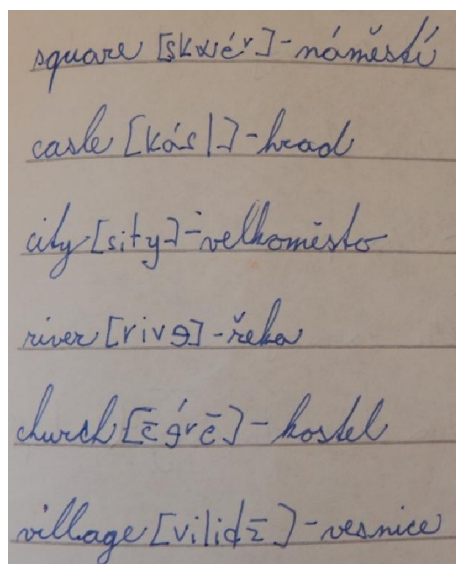 square [skwér] - náměstí
casle [kásl] - hrad
city [sity] - velkoměsto
river [rivə] - řeka
church [čə́rč] - kostel
village [vilidž] - vesnice